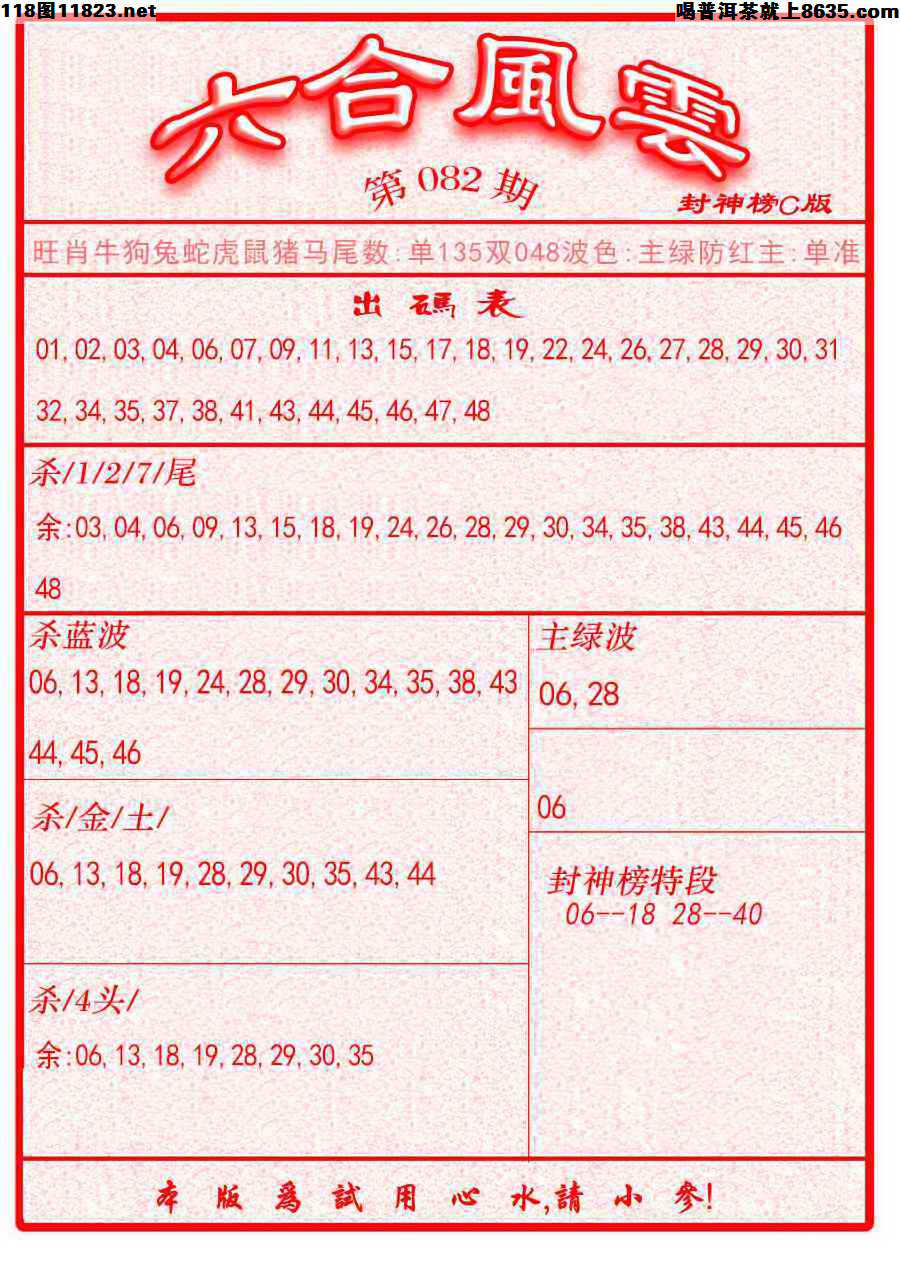 118图11823.net
喝普洱茶就上8635.com
六合風雲
第082期
封神榜C版
旺肖牛狗兔蛇虎鼠猪马尾数:单135双048波色:主绿防红主:单准
出碼表
01,02,03,04,06,07,09,11,13,15,17,18,19,22,24,26,27,28,29,30,31
32,34,35,37,38,41,43,44,45,46,47,48
杀/1/2/7/尾
余:03,04,06,09,13,15,18,19,24,26,28,29,30,34,35,38,43,44,45,46
48
杀蓝波
06,13,18,19,24,28,29,30,34,35,38,43
44,45,46
主绿波
06,28
06
杀/金/土/
06,13,18,19,28,29,30,35,43,44
封神榜特段
06--18 28--40
杀/4头/
余:06,13,18,19,28,29,30,35
本版爲試用心水,請小參!